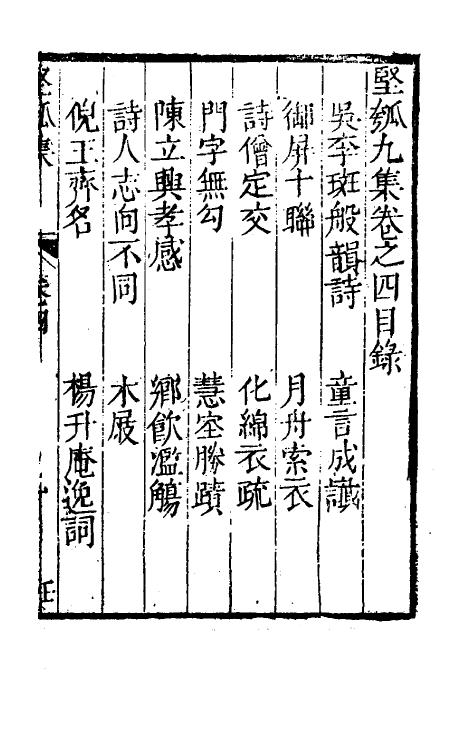 堅瓠九集卷之四目錄
吳李斑般韻詩　童言成讖
御屏十聯　月舟索衣
詩僧定交　化綿衣疏
門字無勾　慧室勝蹟
陳立興孝感　鄉飲濫觴
詩人志向不同　木屐
倪王齊名　楊升庵逸詞
堅瓠集